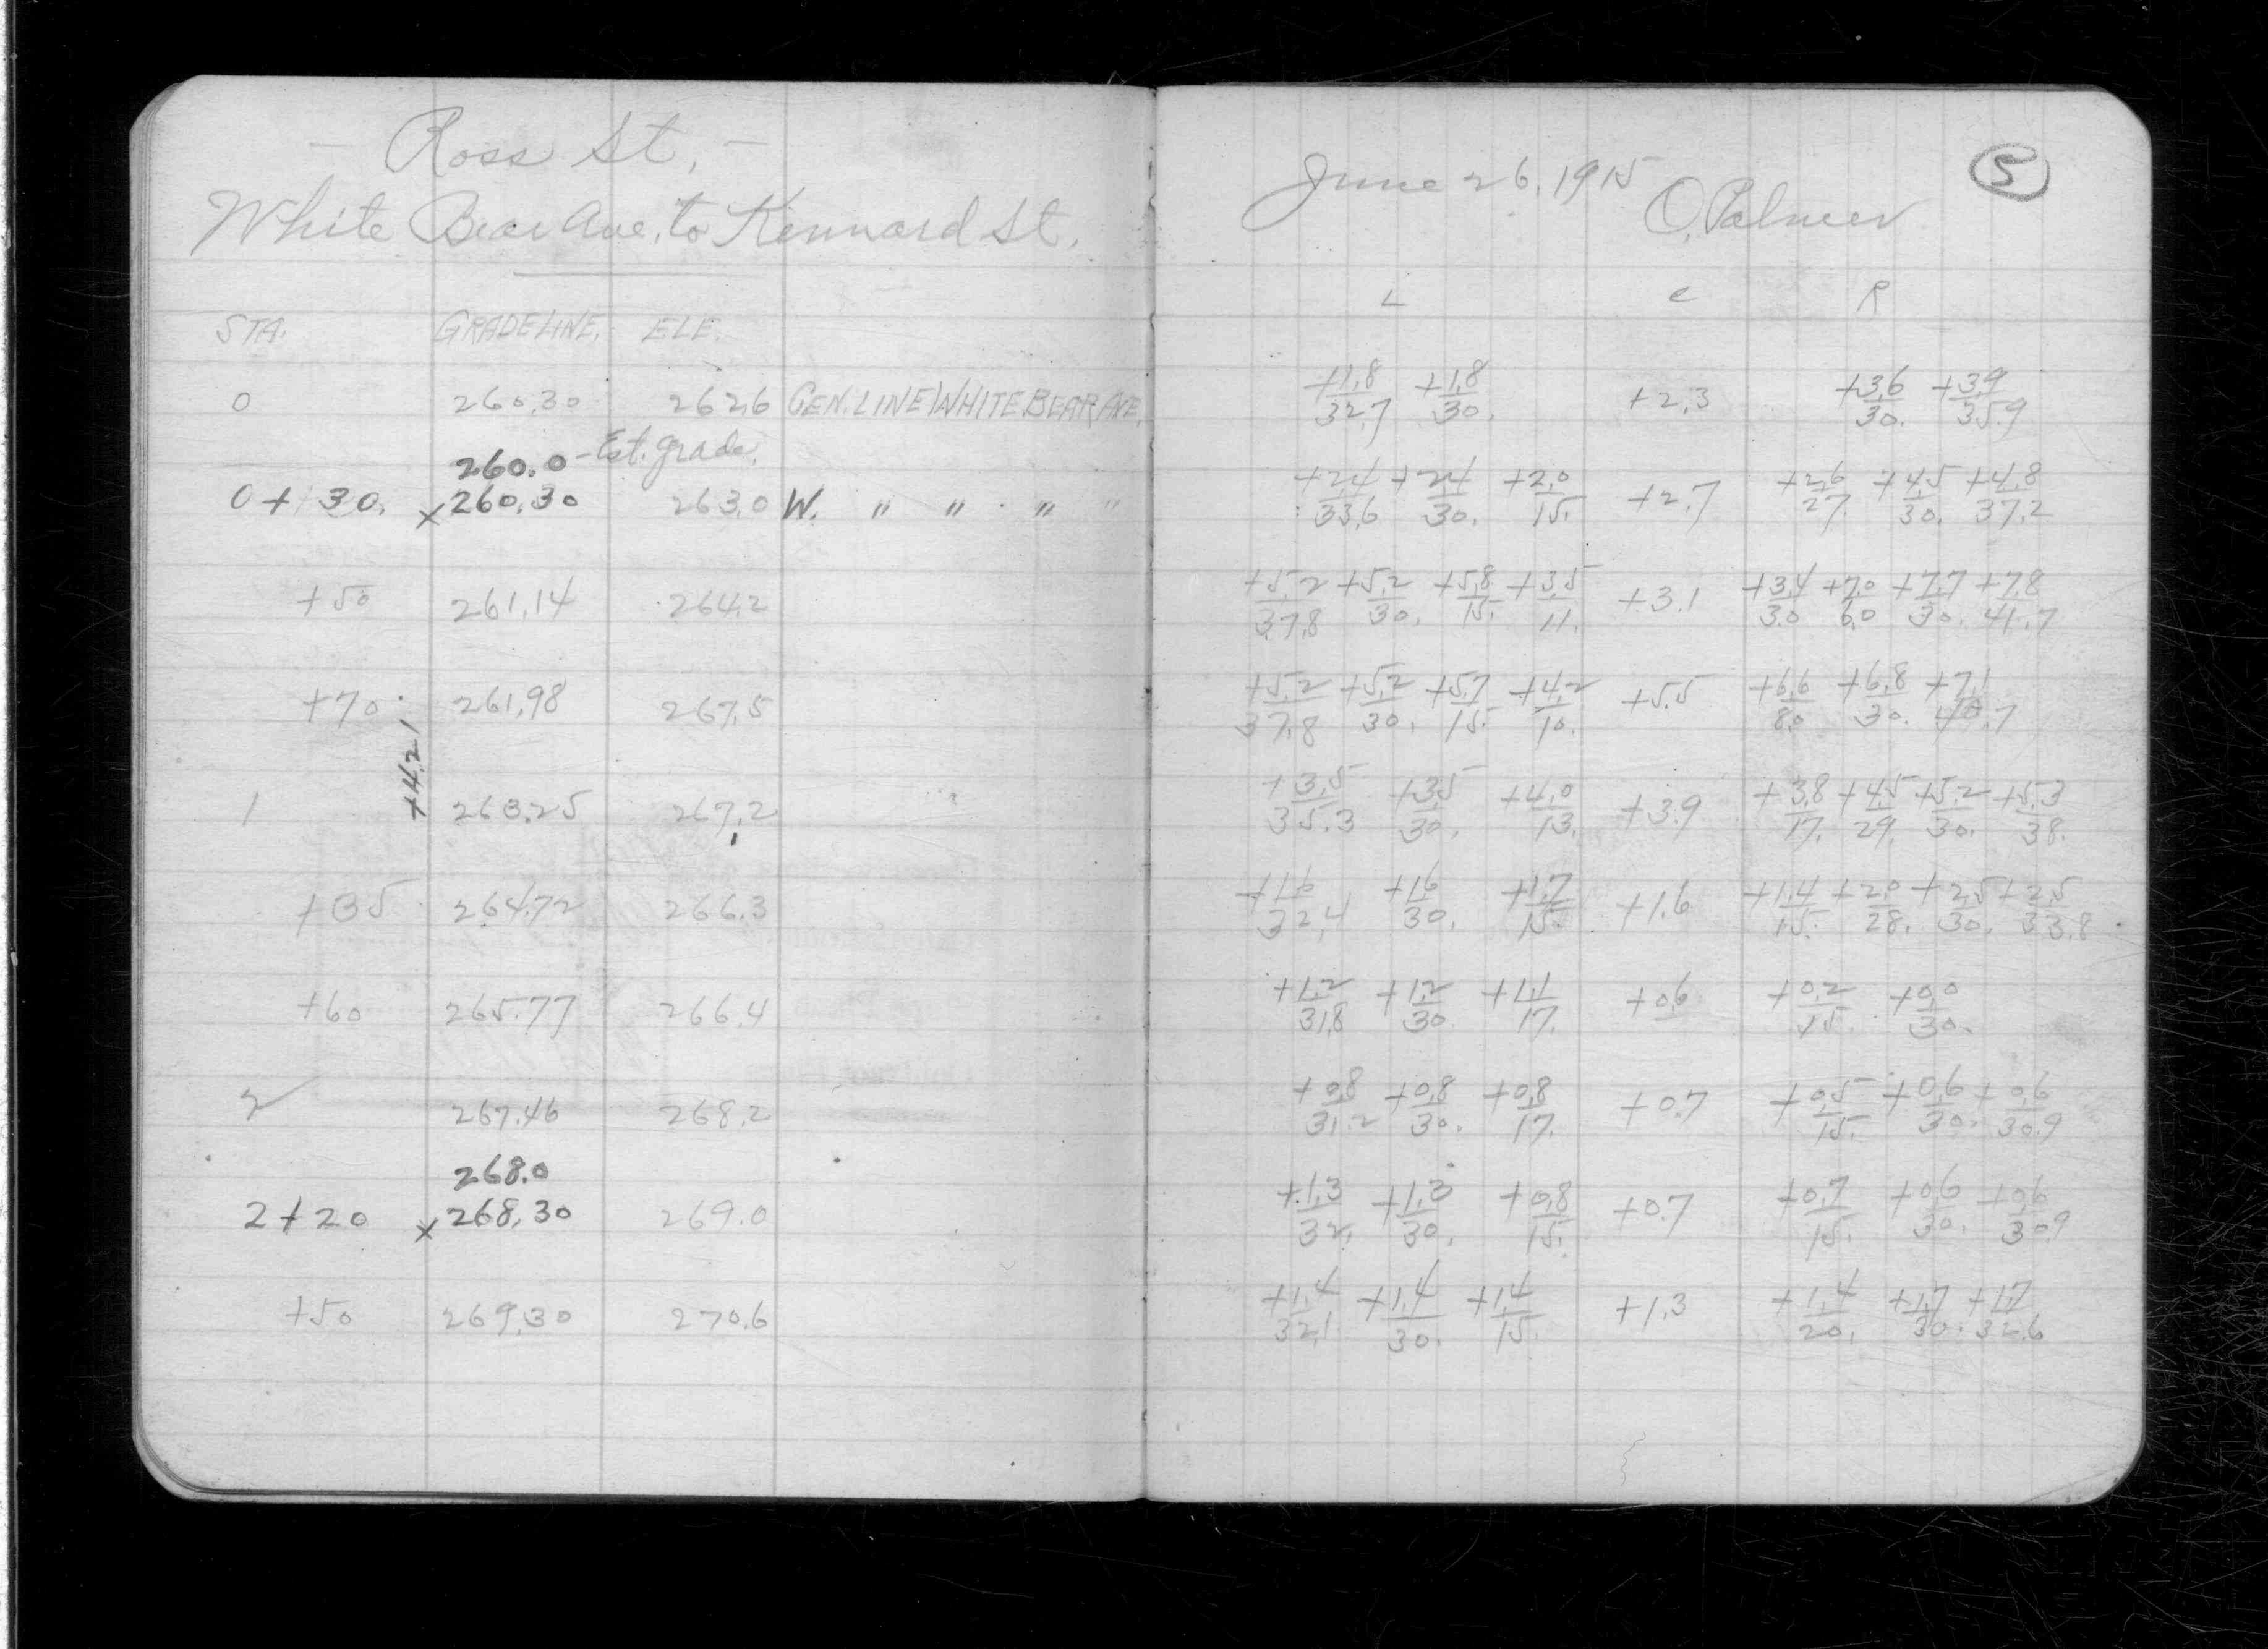 — Ross St. —
White Bear Ave. to Kennard St.
STA. GRADELINE. ELE.
0 260.30 262.6 CEN. LINE WHITE BEAR AVE.
260.0 - Est. grade.
0 + 30. x 260.30 263.0 W. " " " "
+50 261.14 264.2
+70 261.98 267.5
+4.21
1 263.25 267.2
+35 264.72 266.3
+60 265.77 266.4
2 267.46 268.2
268.0
2+20 x 268.30 269.0
+50 269.30 270.6
June 26, 1915 O. Palmer 5
L C R
+1.8/32.7 +1.8/30. +2.3 +3.6/30. +3.9/35.9
+2.4/33.6 +2.4/30. +2.0/15. +2.7 +2.6/27. +4.5/30. +4.8/37.2
+5.2/37.8 +5.2/30. +5.8/15. +3.5/11. +3.1 +3.4/3.0 +7.0/6.0 +7.7/30. +7.8/41.7
+5.2/37.8 +5.2/30. +5.7/15. +4.2/10. +5.5 +6.6/8.0 +6.8/30. +7.1/40.7
+3.5/35.3 +3.5/30. +4.0/13. +3.9 +3.8/17. +4.5/29. +5.2/30. +5.3/38.
+1.6/32.4 +1.6/30. +1.7/15. +1.6 +1.4/15. +2.0/28. +2.5/30. +2.5/33.8
+1.2/31.8 +1.2/30 +1.1/17. +0.6 +0.2/15. +0.0/30.
+0.8/31.2 +0.8/30. +0.8/17. +0.7 +0.5/15. +0.6/30. +0.6/30.9
+1.3/32. +1.3/30. +0.8/15. +0.7 +0.7/15. +0.6/30. +0.6/30.9
+1.4/32.1 +1.4/30. +1.4/15. +1.3 +1.4/20. +1.7/30. +1.7/32.6